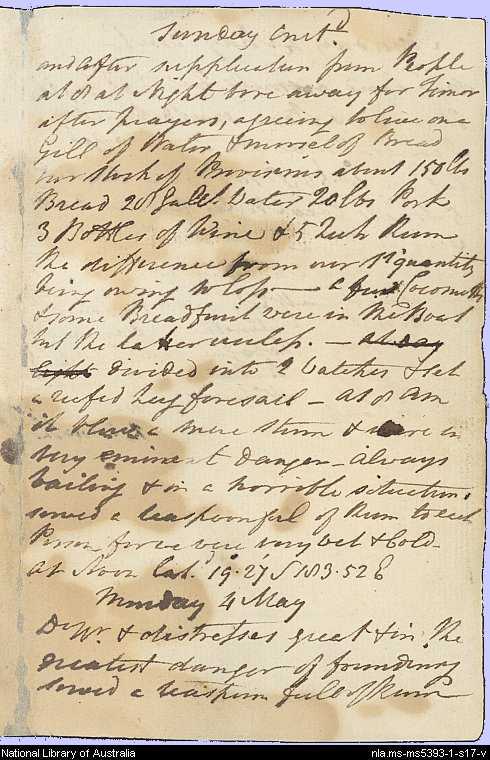 Sunday Contd
and after supplication from People
at 8 at Night bore away for Timor
after prayers, agreeing to live on a
Gill of Water, & morsel of Bread
our Stock of Provisions about 150 lbs
Bread 28 Galls. Water 20 lbs Pork
3 Bottles of Wine & 5 Rum
the difference from our 1st quantity
being owing to loss — a few Cocoanuts
& some Breadfruit were in the Boat
but the latter useless. — at day
light divided into 2 Watches & set
a reefed lug foresail — at 8 am
it blew a mere storm & were in
very eminent danger — always
bailing & in a horrible situation.
served a teaspoonful of Rum to each
Person for we were very wet & Cold
At Noon Lat. 19.27 S 183.52 E
Monday 4 May
Do Wr. & distresses great & in the
greatest danger of foundering
served a teaspoon full of Rum
National Library of Australia
nla.ms-ms5393-1-s17-v